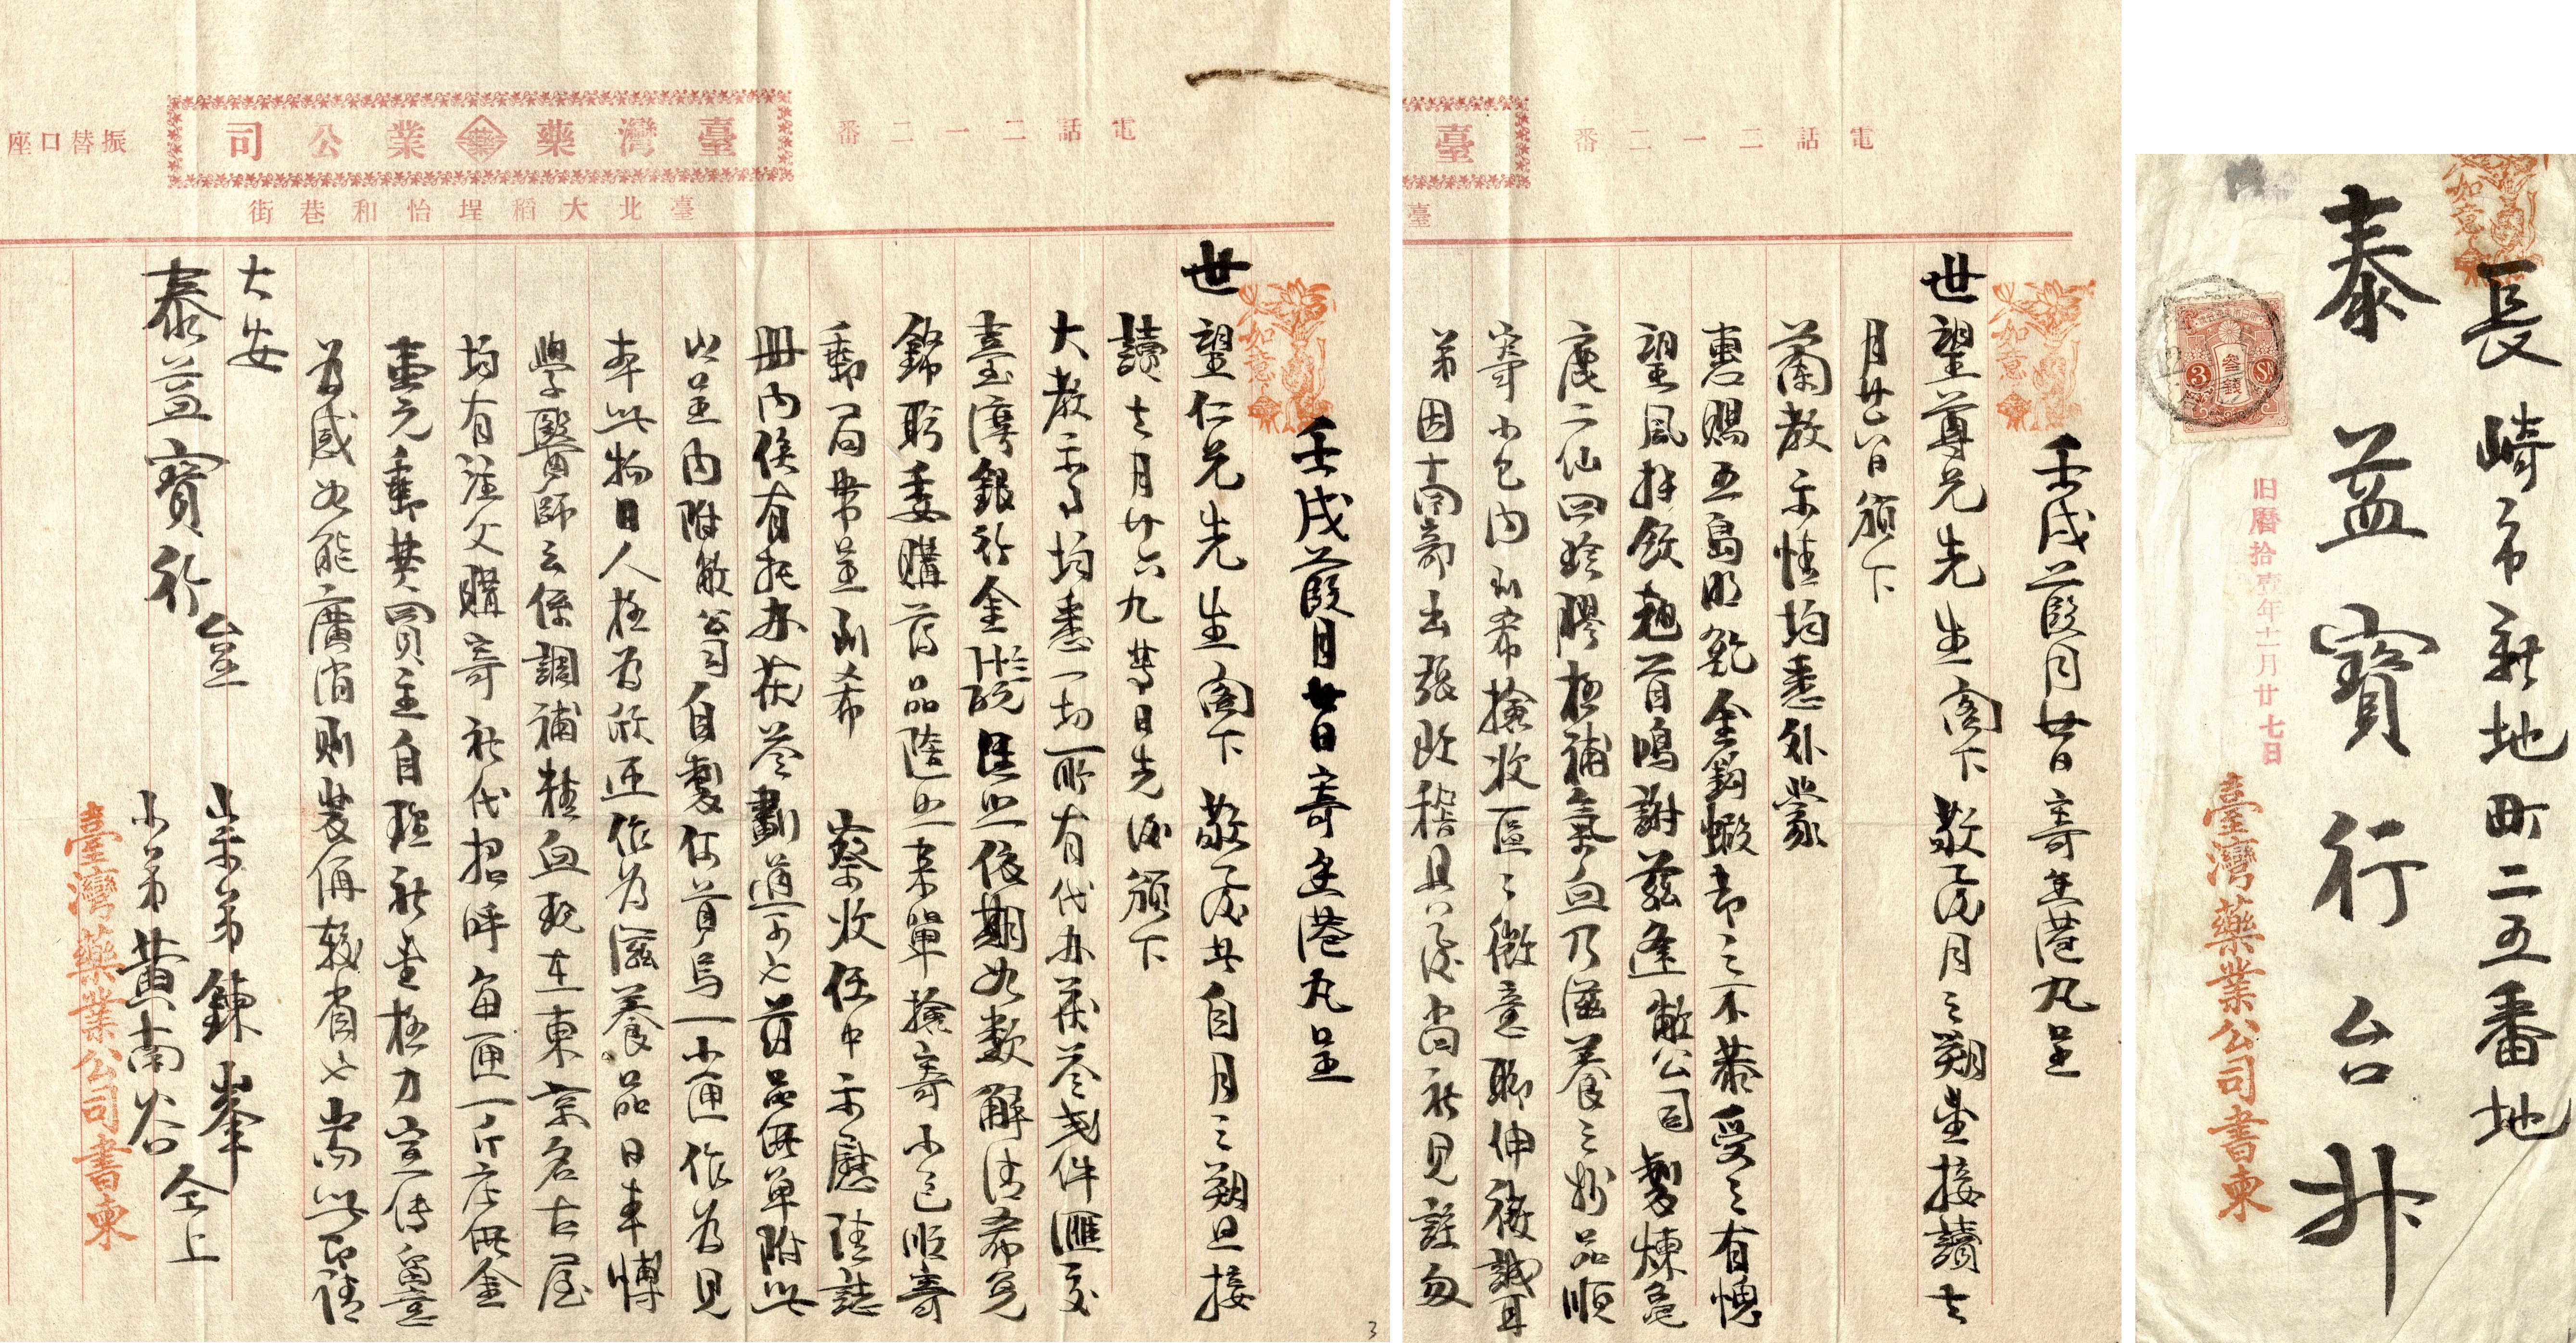 電話二一二番
臺灣藥業公司
振替口座
臺北大稻埕怡和巷街
如意
壬戌葭月廿日寄呈港丸呈
世望仁兄先生閣下 敬启者自月之朔旦接
讀去月廿六九等日先後頒下
大教示等均悉一切所有代办茯苓式件匯交
臺灣銀行金依期如数解清希免
錦盼委購葯品陸来單撿寄小包順寄
郵局帶並到希 察收任中示慰請誌
冊内候有托办茯苓劃道可也葯品無單附此
以呈内附敝公司自製何首烏一小匣作為見
本此物日人極為欣迎作為滋養品日本博
學醫師云係調補精血現在東京名古屋
均有注文購寄祈代招呼每匣一斤庄無金
壹元郵費買主自理祈書極力宣傳
為感如能廣消則裝俩較有也專此即請
大安
泰益寶行 台呈
宗弟鍊峯
小弟黃南谷 仝上
臺灣藥業公司書柬
3
電話二一二番
臺
臺
如意
壬戌葭月廿日寄呈港丸呈
世望尊兄先生閣下 敬启者月之朔接讀去
月廿六日頒下
蘭教示情均悉外蒙
惠賜五島明魷金鈎蝦却之不恭受之有愧
望風拜飲翹首鳴謝茲逢敝公司製煉龜
鹿二仙四珍膠極補氣血乃滋養之妙品順
寄小包内到希撿收區々微意聊伸微誠耳
弟因南部出張致稽具复尚祈見諒勿
如意
長崎市新地町二五番地
泰益寶行台升
3 参錢 Sn
旧曆拾壹年十二月廿七日
臺灣藥業公司書柬